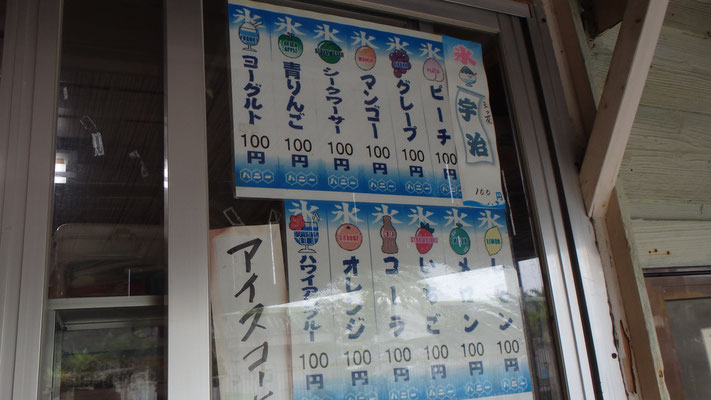 氷 宇治 100円
氷 ピーチ 100円
氷 グレープ 100円
氷 マンゴー 100円
氷 シークワーサー 100円
氷 青りんご 100円
氷 ヨーグルト 100円
ハニー ハニー ハニー ハニー ハニー
氷 メロン 100円
氷 いちご 100円
氷 コーラ 100円
氷 オレンジ 100円
氷 ハワイアンブルー 100円
アイスコーヒ